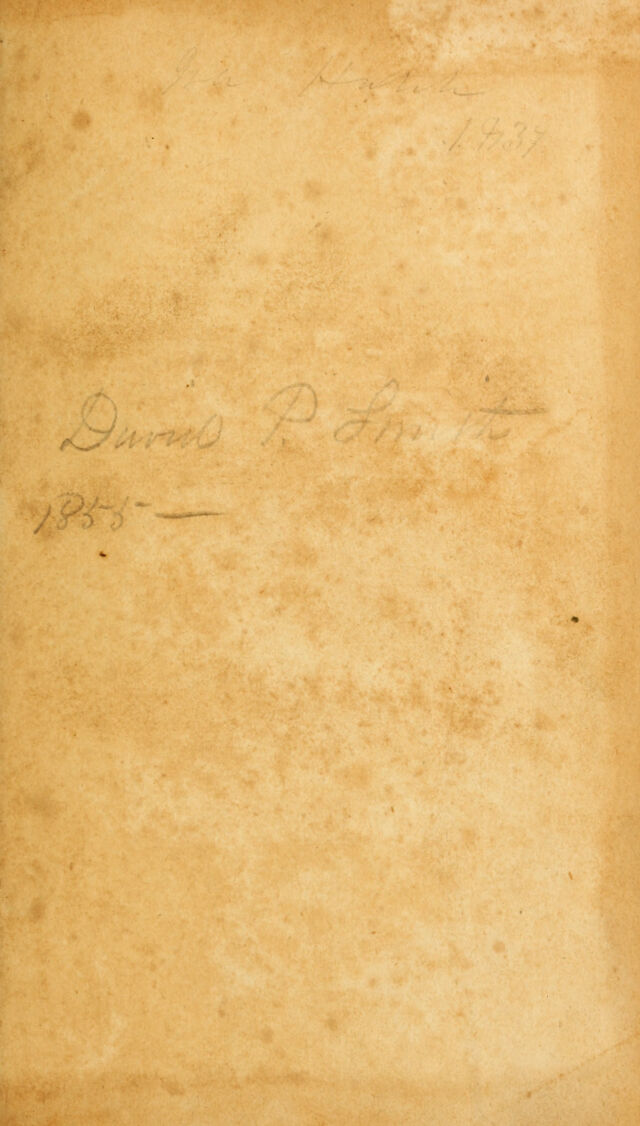 Hatch
1837
David P. Smith
1855 —